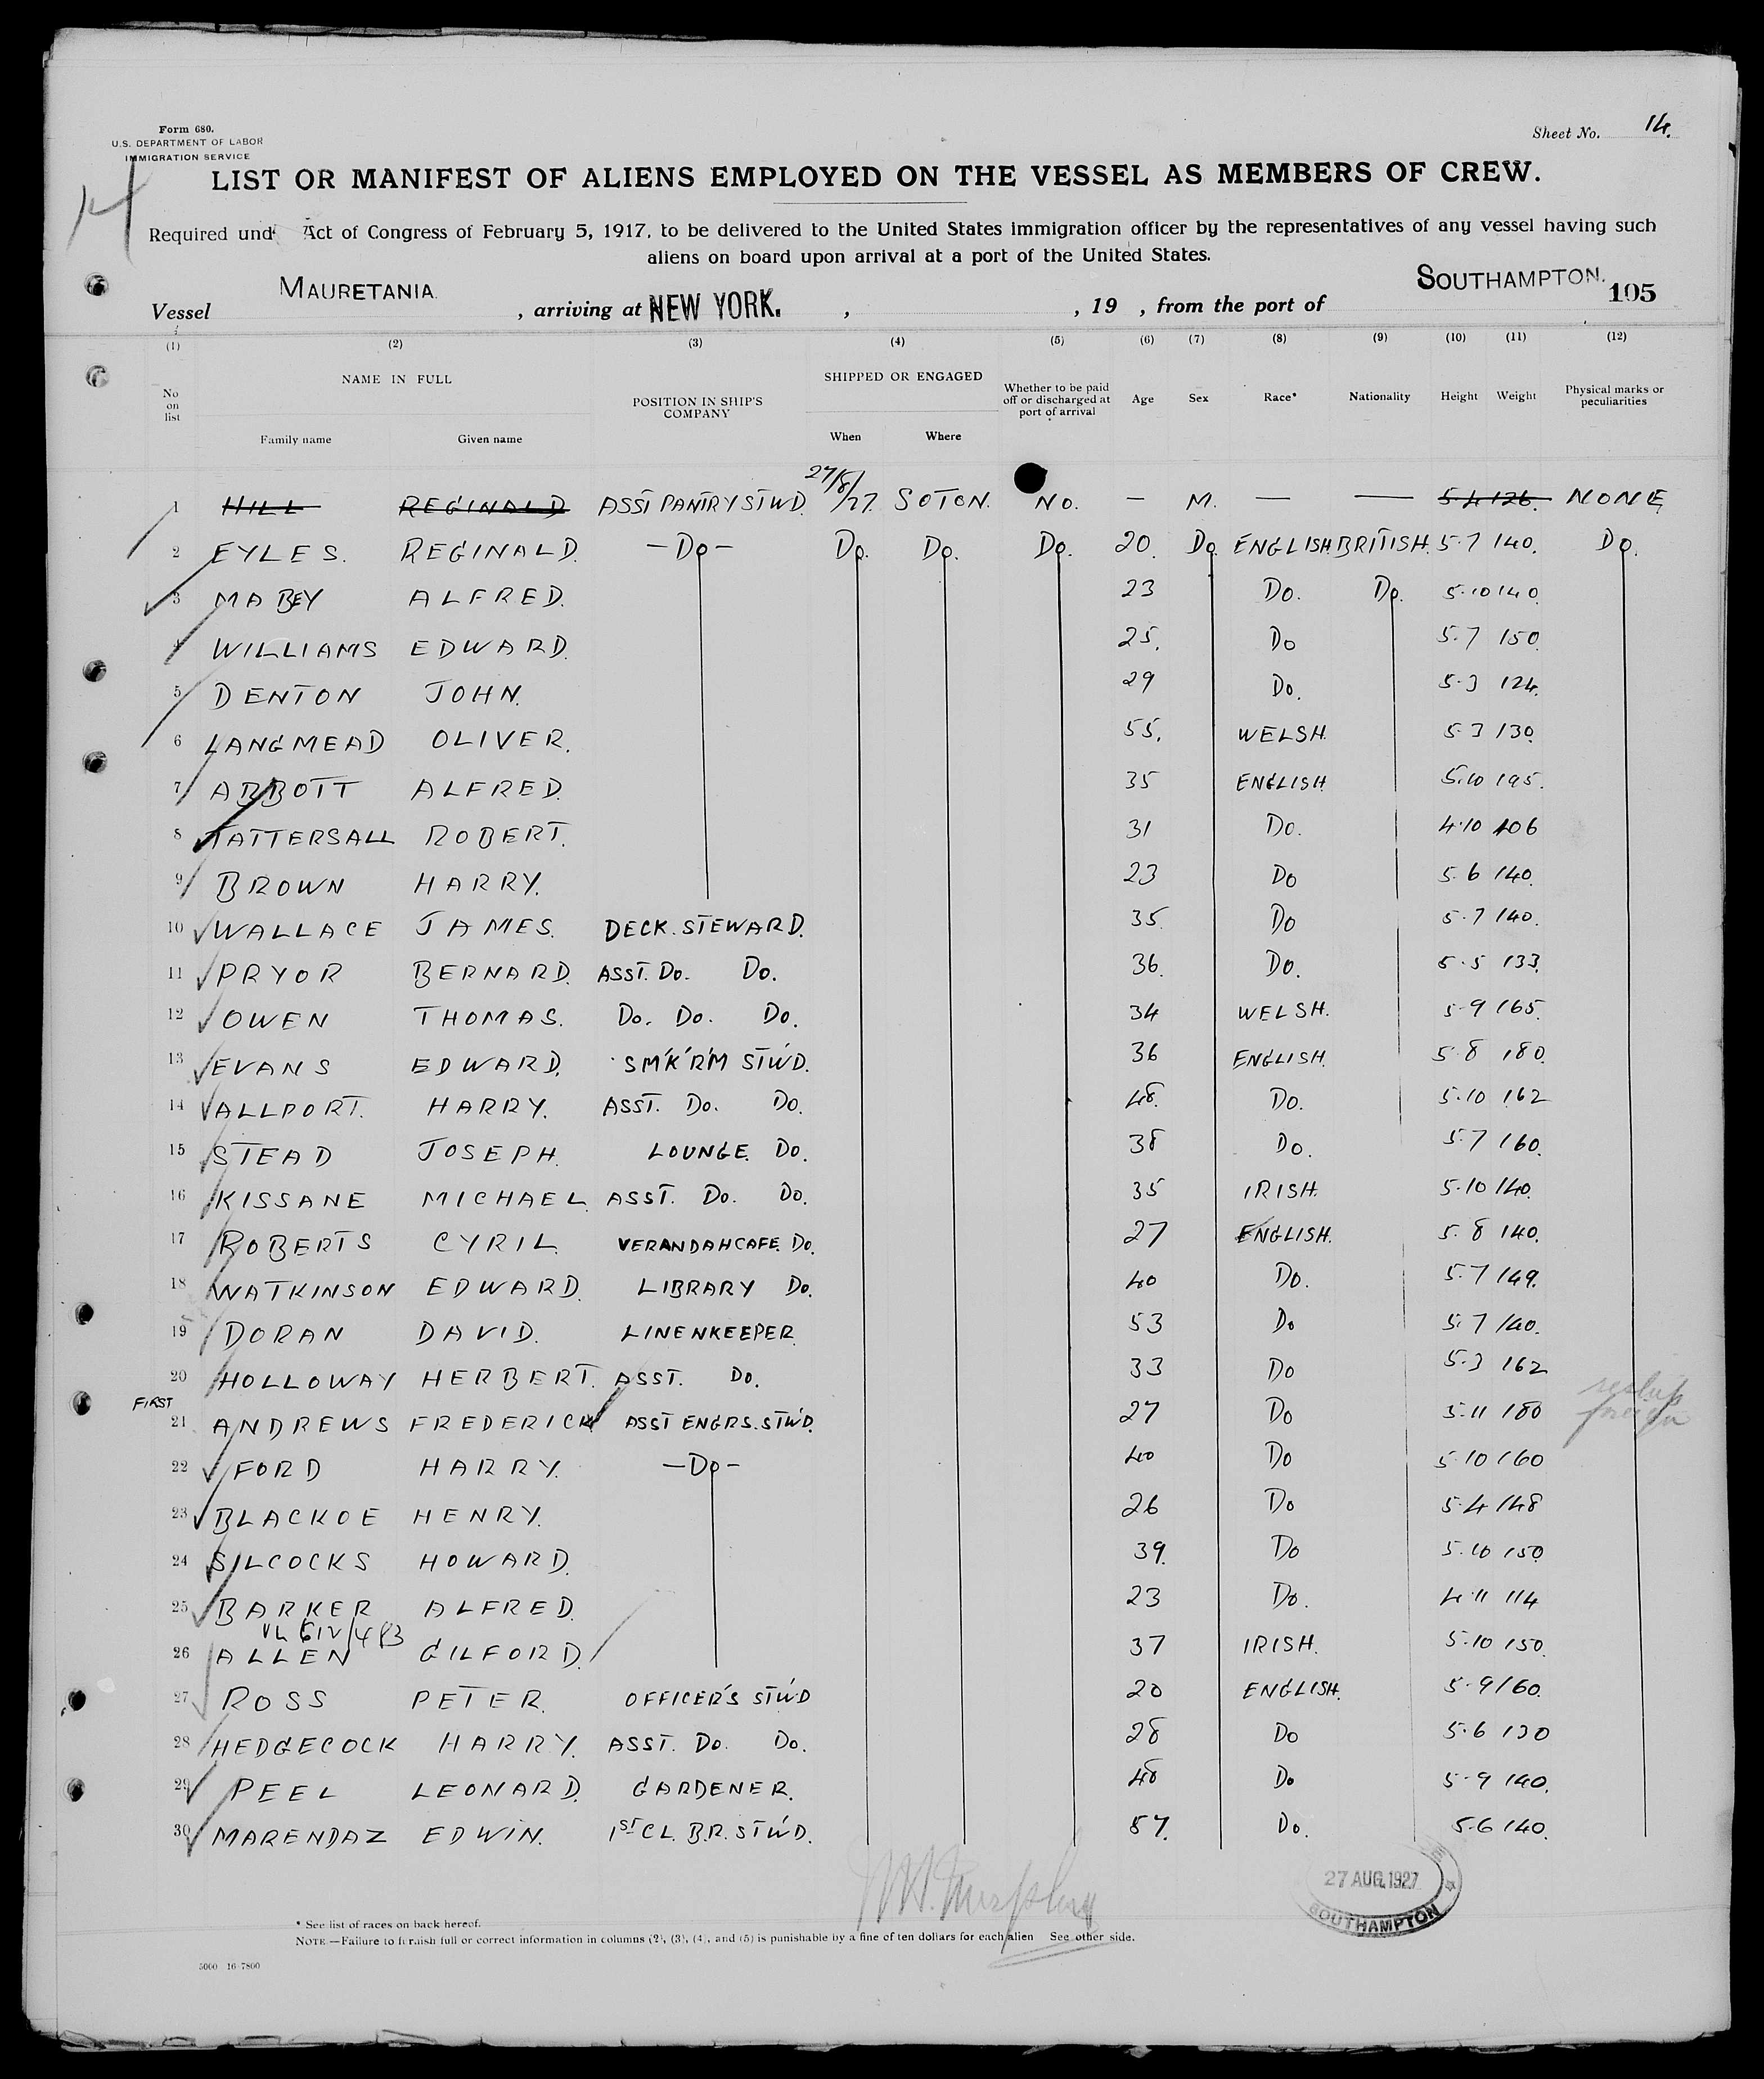 Form 680.
U.S. DEPARTMENT OF LABOR
IMMIGRATION SERVICE
Sheet No. 14.
14
LIST OR MANIFEST OF ALIENS EMPLOYED ON THE VESSEL AS MEMBERS OF CREW.
Required und Act of Congress of February 5, 1917, to be delivered to the United States immigration officer by the representatives of any vessel having such
aliens on board upon arrival at a port of the United States.
Vessel MAURETANIA, arriving at NEW YORK. , , 19 , from the port of SOUTHAMPTON. 105
(1) (2) (3) (4) (5) (6) (7) (8) (9) (10) (11) (12)
No on list NAME IN FULL Family name Given name POSITION IN SHIP'S COMPANY SHIPPED OR ENGAGED When Where Whether to be paid off or discharged at port of arrival Age Sex Race* Nationality Height Weight Physical marks or peculiarities
1 HILL REGINALD ASST PANTRY STWD. 27/8/27. SOTON. NO. — M. — — 5 4 126. NONE
2 EYLES. REGINALD. —DO— DO. DO. DO. 20. DO ENGLISH BRITISH. 5·7 140. DO.
3 MABEY ALFRED. 23 DO. DO. 5·10 140.
4 WILLIAMS EDWARD. 25. DO 5·7 150.
5 DENTON JOHN. 29 DO. 5·3 124.
6 LANGMEAD OLIVER. 55. WELSH. 5·3 130.
7 ABBOTT ALFRED. 35 ENGLISH. 5.10 195.
8 TATTERSALL ROBERT. 31 DO. 4·10 106
9 BROWN HARRY. 23 DO 5·6 140.
10 WALLACE JAMES. DECK. STEWARD. 35. DO 5·7 140.
11 PRYOR BERNARD. ASST. DO. DO. 36. DO. 5·5 133.
12 OWEN THOMAS. DO. DO. DO. 34 WELSH. 5·9 165.
13 EVANS EDWARD. SM'K'R'M STW'D. 36 ENGLISH. 5·8 180.
14 ALLPORT. HARRY. ASST. DO. DO. 48. DO. 5·10 162
15 STEAD JOSEPH. LOUNGE. DO. 38 DO. 5·7 160.
16 KISSANE MICHAEL. ASST. DO. DO. 35 IRISH. 5·10 140.
17 ROBERTS CYRIL. VERANDAH CAFE. DO. 27 ENGLISH. 5·8 140.
18 WATKINSON EDWARD. LIBRARY DO. 40 DO. 5·7 149.
19 DORAN DAVID. LINENKEEPER 53 DO 5·7 140.
20 HOLLOWAY HERBERT. ASST. DO. 33 DO 5·3 162
FIRST
21 ANDREWS FREDERICK ASST ENGRS. STW'D. 27 DO 5·11 180
22 FORD HARRY. —DO— 40 DO 5·10 160
23 BLACKOE HENRY. 26 DO 5·4 148
24 SILCOCKS HOWARD. 39. DO 5·10 150
25 BARKER ALFRED. 23 DO. 4·11 114
26 ALLEN GILFORD. 37 IRISH. 5·10 150.
27 ROSS PETER. OFFICER'S STW'D 20 ENGLISH. 5·9 160.
28 HEDGECOCK HARRY. ASST. DO. DO. 28 DO 5·6 130
29 PEEL LEONARD. GARDENER. 48 DO 5·9 140.
30 MARENDAZ EDWIN. 1ST CL. B.R. STW'D. 57. DO. 5·6 140.
27 AUG. 1927
SOUTHAMPTON
* See list of races on back hereof.
NOTE.—Failure to furnish full or correct information in columns (2), (3), (4), and (5) is punishable by a fine of ten dollars for each alien See other side.
5000 16-7800